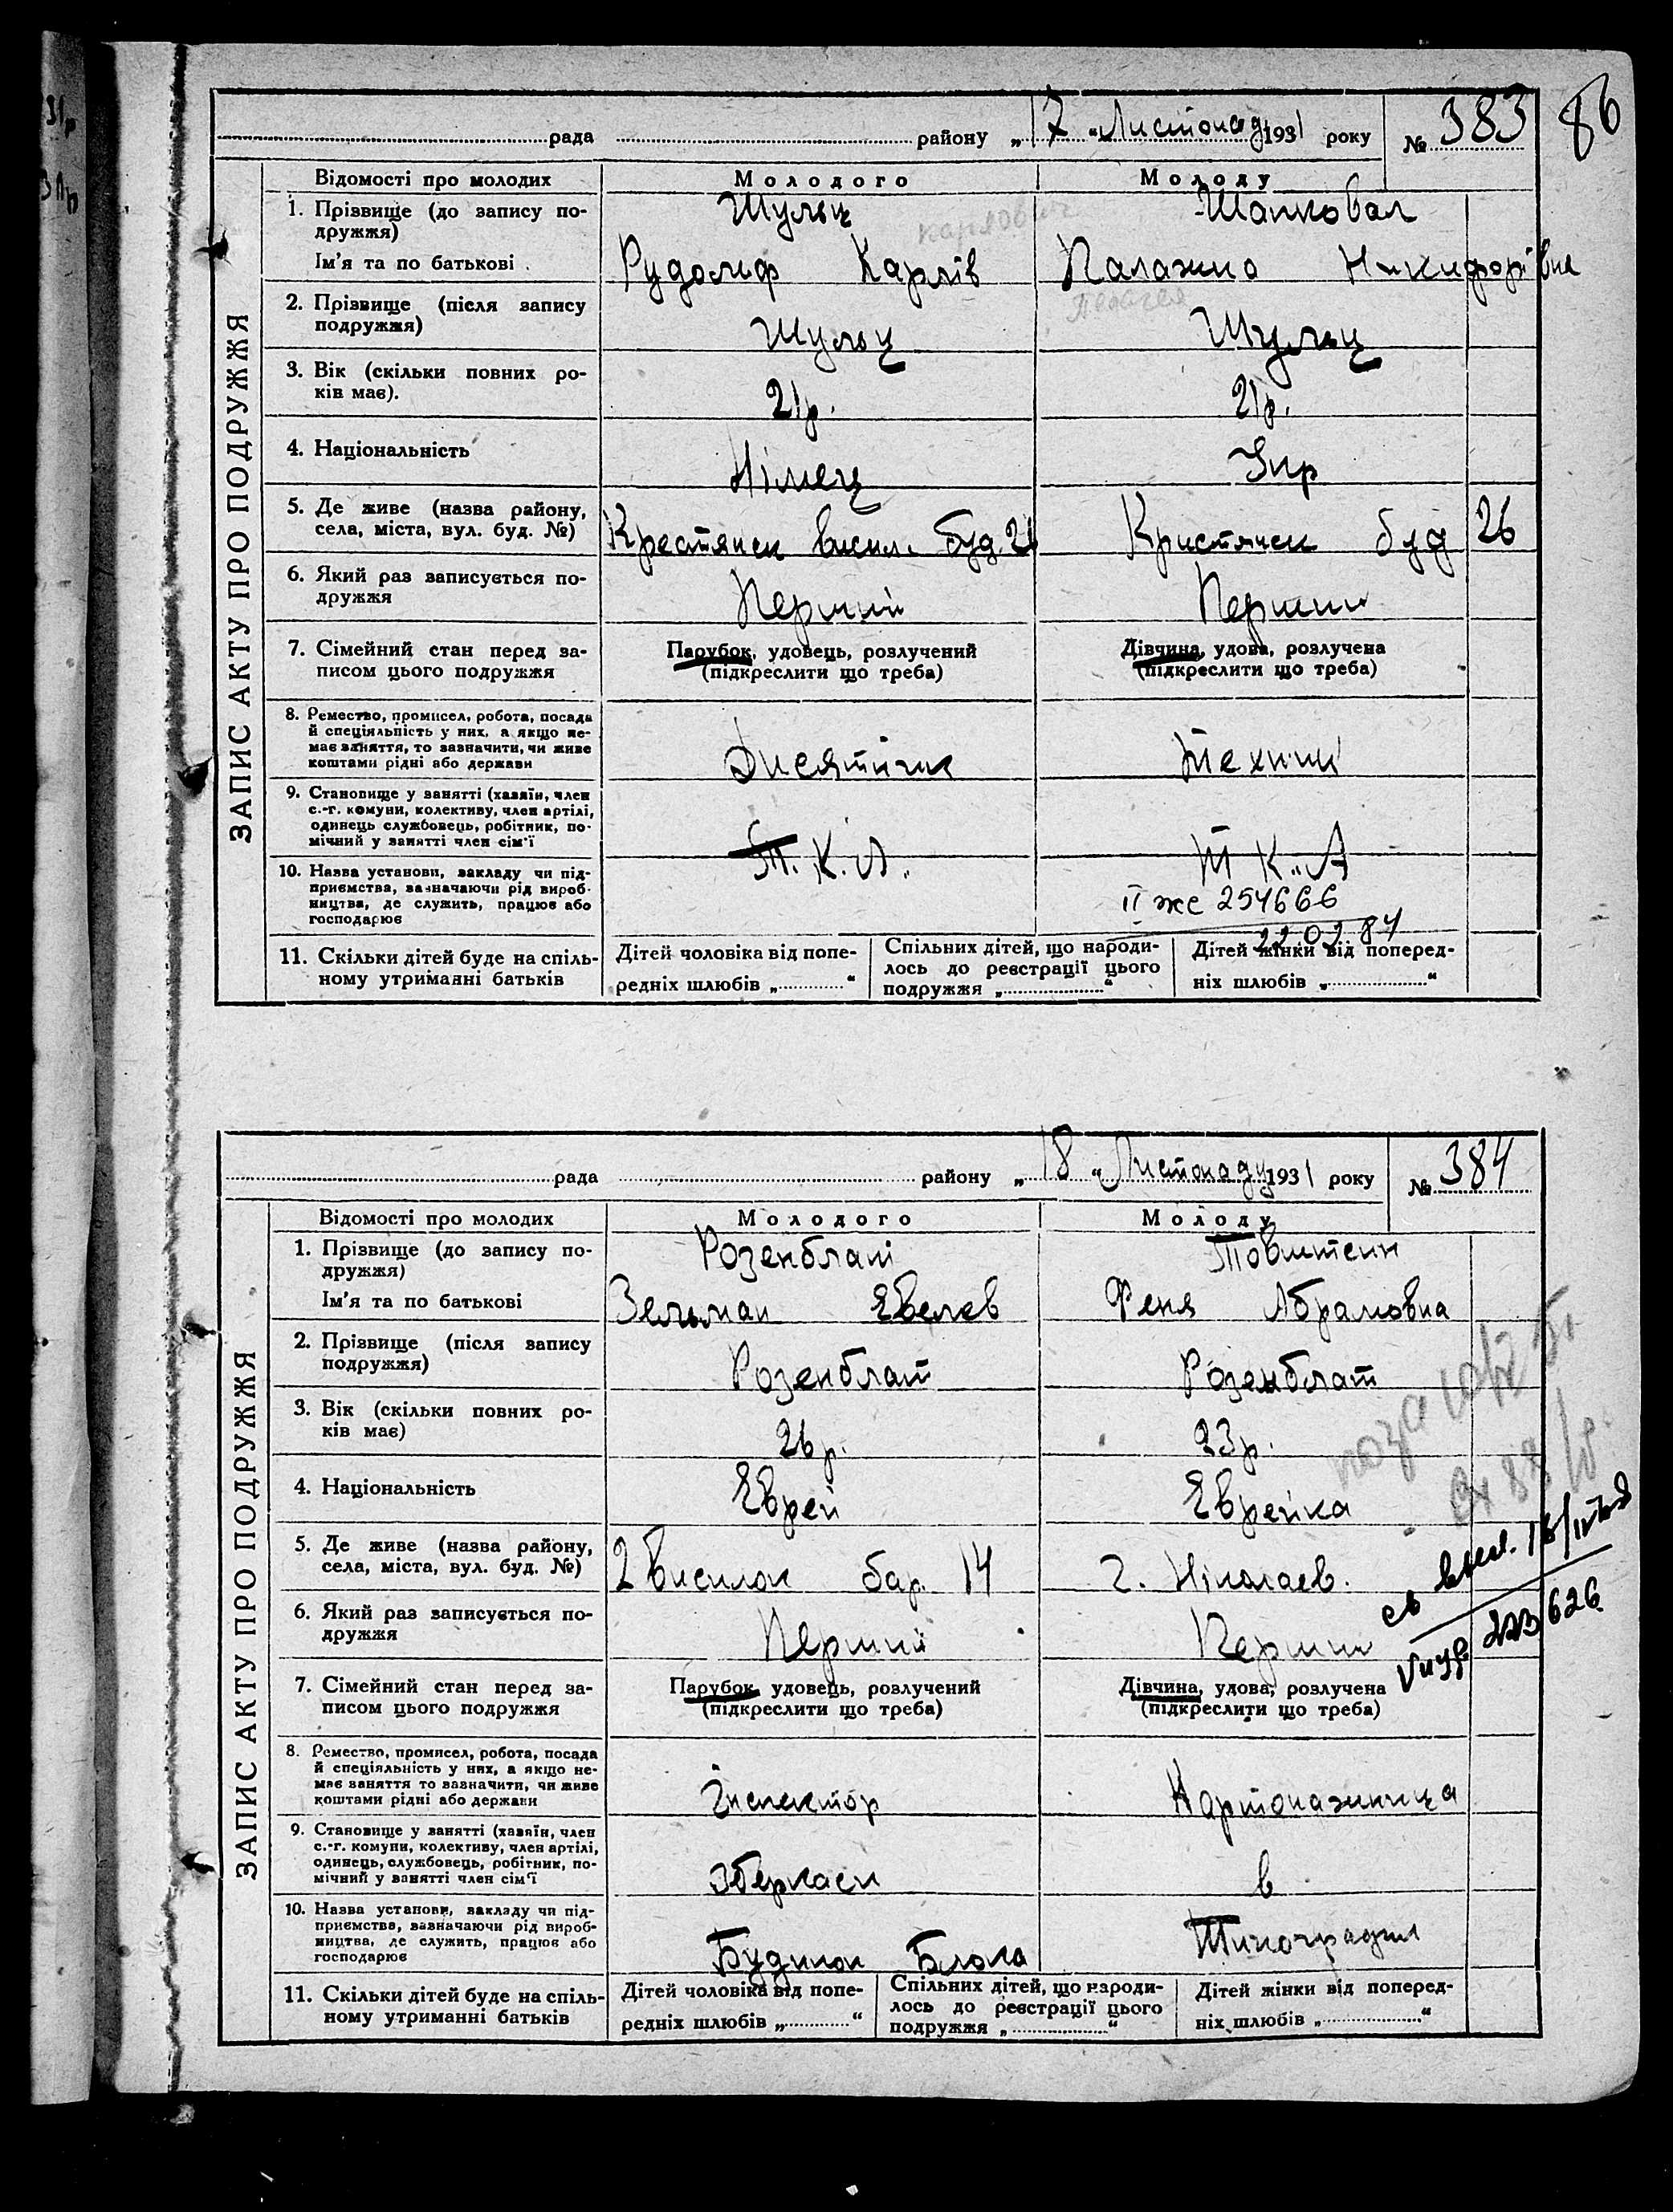 31р
86
рада района „17 “ Листопаду 1931 року № 383
ЗАПИС АКТУ ПРО ПОДРУЖЖЯ
Відомості про молодих Молодого Молоду
1. Прізвище (до запису по-
дружжя)
Шульц Шаповал
Карлович
Ім'я та по батькові
Рудольф Карлів Палажка Никифорівна
Пелагея
2. Прізвище (після запису
подружжя)
Шульц Шульц
3. Вік (скільки повних ро-
ків має).
21р. 21р.
4. Національність
Німец Укр
5. Де живе (назва району,
села, міста, вул. буд. №)
буд. 26 буд 26
6. Який раз записується по-
дружжя
Перший Перший
7. Сімейний стан перед за-
писом цього подружжя
Парубок, удовець, розлучений
(підкреслити що треба)
Дівчина, удова, розлучена
(підкреслити що треба)
8. Ремество, промисел, робота, посада
й спеціяльність у них, а якщо не-
має заняття, то зазначити, чи живе
коштами рідні або держави
Технік
9. Становище у занятті (хазяїн, член
с.-г. комуни, колективу, член артілі,
одинець службовець, робітник, по-
мічний у занятті член сім'ї
10. Назва установи, закладу чи під-
приємства, зазначаючи рід вироб-
ництва, де служить, працює або
господарює
II же 254666
22 02 84
11. Скільки дітей буде на спіль-
ному утриманні батьків
Дітей чоловіка від попе-
редніх шлюбів „ “
Спільних дітей, що народи-
лось до реєстрації цього
подружжя „ “
Дітей жінки від поперед-
ніх шлюбів „ “
рада району „18 “ Листопаду 1931 року № 384
ЗАПИС АКТУ ПРО ПОДРУЖЖЯ
Відомості про молодих Молодого Молоду
1. Прізвище (до запису по-
дружжя)
Розенблат Товштеин
Ім'я та по батькові
Зельман Евелев Феня Абрамовна
2. Прізвище (після запису
подружжя)
Розенблат Розенблат
3. Вік (скільки повних ро-
ків має)
26р. 23р.
4. Національність
Еврей Еврейка
5. Де живе (назва району,
села, міста, вул. буд. №)
2 висилок бар. 14 г. Ніколаев.
6. Який раз записується по-
дружжя
Перший Перший
223626
7. Сімейний стан перед за-
писом цього подружжя
Парубок, удовець, розлучений
(підкреслити що треба)
Дівчина, удова, розлучена
(підкреслити що треба)
8. Ремество, промисел, робота, посада
й спеціяльність у них, а якщо не-
має заняття то зазначити, чи живе
коштами рідні або держави
Інспектор Картонажница
9. Становище у занятті (хазяїн, член
с.-г. комуни, колективу, член артілі,
одинець, службовець, робітник, по-
мічний у занятті член сім'ї
Зберкаси в
10. Назва установи, закладу чи під-
приємства, зазначаючи рід вироб-
ництва, де служить, працює або
господарює
Будинок Блока Типографии
11. Скільки дітей буде на спіль-
ному утриманні батьків
Дітей чоловіка від попе-
редніх шлюбів „ “
Спільних дітей, що народи-
лось до реєстрації цього
подружжя „ “
Дітей жінки від поперед-
ніх шлюбів „ “